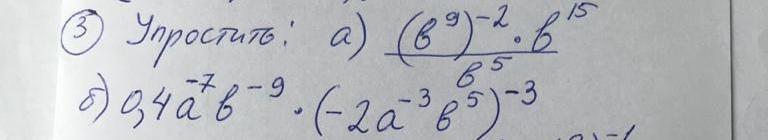 ③ Упростить: а) (в⁹)⁻² · в¹⁵ / в⁵
б) 0,4а⁻⁷в⁻⁹ · (-2а⁻³в⁵)⁻³